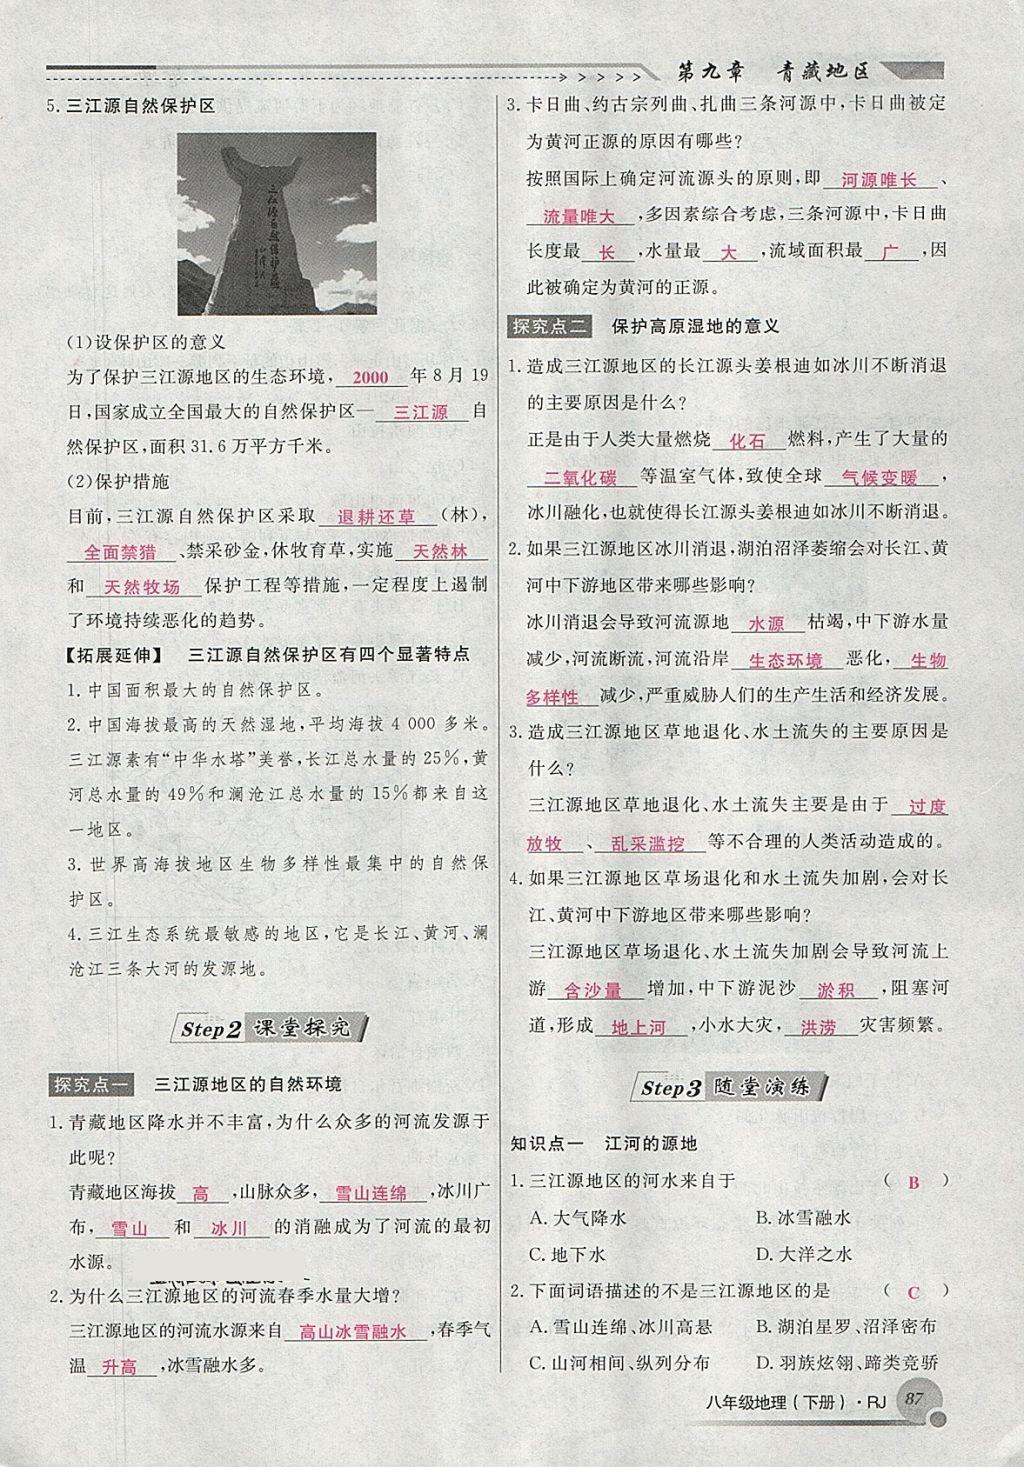 第九章 青藏地区
5. 三江源自然保护区
三江源自然保护区
(1)设保护区的意义
为了保护三江源地区的生态环境, 2000 年8月19
日,国家成立全国最大的自然保护区— 三江源 自
然保护区,面积31.6万平方千米。
(2)保护措施
目前,三江源自然保护区采取 退耕还草 (林),
全面禁猎 、禁采砂金,休牧育草,实施 天然林
和 天然牧场 保护工程等措施,一定程度上遏制
了环境持续恶化的趋势。
【拓展延伸】 三江源自然保护区有四个显著特点
1. 中国面积最大的自然保护区。
2. 中国海拔最高的天然湿地,平均海拔4 000多米。
三江源素有“中华水塔”美誉,长江总水量的25%,黄
河总水量的49%和澜沧江总水量的15%都来自这
一地区。
3. 世界高海拔地区生物多样性最集中的自然保
护区。
4. 三江生态系统最敏感的地区,它是长江、黄河、澜
沧江三条大河的发源地。
Step2 课堂探究
探究点一 三江源地区的自然环境
1. 青藏地区降水并不丰富,为什么众多的河流发源于
此呢?
青藏地区海拔 高 ,山脉众多, 雪山连绵 ,冰川广
布, 雪山 和 冰川 的消融成为了河流的最初
水源。
2. 为什么三江源地区的河流春季水量大增?
三江源地区的河流水源来自 高山冰雪融水 ,春季气
温 升高 ,冰雪融水多。
3. 卡日曲、约古宗列曲、扎曲三条河源中,卡日曲被定
为黄河正源的原因有哪些?
按照国际上确定河流源头的原则,即 河源唯长 、
流量唯大 ,多因素综合考虑,三条河源中,卡日曲
长度最 长 ,水量最 大 ,流域面积最 广 ,因
此被确定为黄河的正源。
探究点二 保护高原湿地的意义
1. 造成三江源地区的长江源头姜根迪如冰川不断消退
的主要原因是什么?
正是由于人类大量燃烧 化石 燃料,产生了大量的
二氧化碳 等温室气体,致使全球 气候变暖 ,
冰川融化,也就使得长江源头姜根迪如冰川不断消退。
2. 如果三江源地区冰川消退,湖泊沼泽萎缩会对长江、黄
河中下游地区带来哪些影响?
冰川消退会导致河流源地 水源 枯竭,中下游水量
减少,河流断流,河流沿岸 生态环境 恶化, 生物
多样性 减少,严重威胁人们的生产生活和经济发展。
3. 造成三江源地区草地退化、水土流失的主要原因是
什么?
三江源地区草地退化、水土流失主要是由于 过度
放牧 、 乱采滥挖 等不合理的人类活动造成的。
4. 如果三江源地区草场退化和水土流失加剧,会对长
江、黄河中下游地区带来哪些影响?
三江源地区草场退化、水土流失加剧会导致河流上
游 含沙量 增加,中下游泥沙 淤积 ,阻塞河
道,形成 地上河 ,小水大灾, 洪涝 灾害频繁。
Step3 随堂演练
知识点一 江河的源地
1. 三江源地区的河水来自于 ( B )
A. 大气降水 B. 冰雪融水
C. 地下水 D. 大洋之水
2. 下面词语描述的不是三江源地区的是 ( C )
A. 雪山连绵、冰川高悬 B. 湖泊星罗、沼泽密布
C. 山河相间、纵列分布 D. 羽族炫翎、蹄类竞骄
八年级地理(下册)·RJ 87